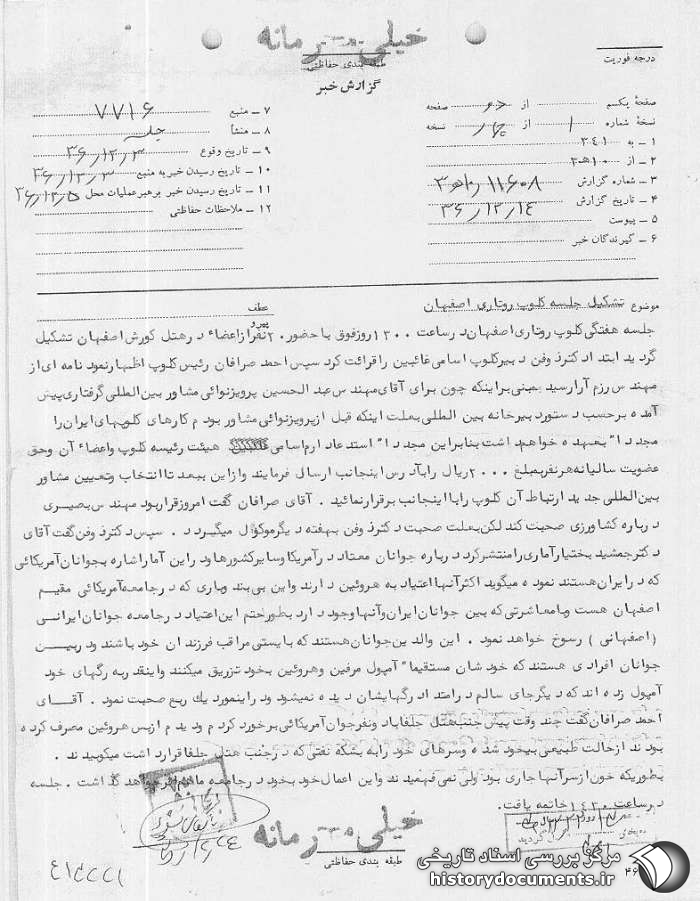 خیلی محرمانه
طبقه بندی حفاظتی
گزارش خبر
درجه فوریت
صفحهٔ یکم از دو صفحه
نسخهٔ شماره ۱ از چهار نسخه
۱ ـ به ۳۴۱
۲ ـ از ۱۰ه۳
۳ ـ شماره گزارش ۱۱۶۰۸/۱۰ه۳
۴ ـ تاریخ گزارش ۳۶/۱۲/۱۴
۵ ـ پیوست
۶ ـ گیرندگان خبر
۷ ـ منبع ۷۷۱۶
۸ ـ منشأ جلسه
۹ ـ تاریخ وقوع ۳۶/۱۲/۳
۱۰ ـ تاریخ رسیدن خبر به منبع ۳۶/۱۲/۳
۱۱ ـ تاریخ رسیدن خبر برهبر عملیات محل ۳۶/۱۲/۵
۱۲ ـ ملاحظات حفاظتی
موضوع تشکیل جلسه کلوپ روتاری اصفهان
عطف
پیرو
جلسه هفتگی کلوپ روتاری اصفهان در ساعت ۱۳۰۰ روز فوق با حضور ۲۰ نفر از اعضاء در هتل کورش اصفهان تشکیل
گردید ابتدا دکتر ذوفن دبیر کلوپ اسامی غائبین را قرائت کرد سپس احمد صرافان رئیس کلوپ اظهار نمود نامه ای از
مهندس رزم آرا رسید مبنی بر اینکه چون برای آقای مهندس عبدالحسین پرویز نوائی مشاور بین المللی گرفتاری پیش
آمده برحسب دستور دبیرخانه بین المللی بعلت اینکه قبل از پرویز نوائی مشاور بودم کارهای کلوپهای ایران را
مجددا" بعهده خواهم داشت بنابراین مجددا" استدعا دارم اسامی هیئت رئیسه کلوپ و اعضاء آن وحق
عضویت سالیانه هر نفر بمبلغ ۲۰۰۰ ریال را بآدرس اینجانب ارسال فرمایند و از این ببعد تا انتخاب و تعیین مشاور
بین المللی جدید ارتباط آن کلوپ را با اینجانب برقرار نمائید . آقای صرافان گفت امروز قرار بود مهندس بصیری
درباره کشاورزی صحبت کند لکن بعلت صحبت دکتر ذوفن بهفته دیگر موکول میگردد . سپس دکتر ذوفن گفت آقای
دکتر جمشید بختیار آماری را منتشر کرد درباره جوانان معتاد در آمریکا و سایر کشورها و در این آمار اشاره بجوانان آمریکائی
که در ایران هستند نموده میگوید اکثر آنها اعتیاد به هروئین دارند و این بی بند و باری که در جامعه آمریکائی مقیم
اصفهان هست و با معاشرتی که بین جوانان ایران و آنها وجود دارد بطور حتم این اعتیاد در جامعه جوانان ایرانی
(اصفهانی ) رسوخ خواهد نمود . این والدین جوانان هستند که بایستی مراقب فرزندان خود باشند و در بین
جوانان افرادی هستند که خودشان مستقیما" آمپول مرفین و هروئین بخود تزریق میکنند و اینقدر به رگهای خود
آمپول زده اند که دیگر جای سالم در امتداد رگهایشان دیده نمیشود و در اینمورد یک ربع صحبت نمود . آقای
احمد صرافان گفت چند وقت پیش جنب هتل جلفا با دو نفر جوان آمریکائی برخورد کردم و دیدم از بس هروئین مصرف کرده
بودند از حالت طبیعی بیخود شده و سرهای خود را به بشکه نفتی که در جنب هتل جلفا قرار داشت میکوبیدند .
بطوریکه خون از سر آنها جاری بود ولی نمی فهمیدند و این اعمال خود بخود در جامعه ما هم اثر خواهد گذاشت . جلسه
در ساعت ۱۴۳۰ خاتمه یافت .
خیلی محرمانه
طبقه بندی حفاظتی
مرکز بررسی اسناد تاریخی
historydocuments.ir